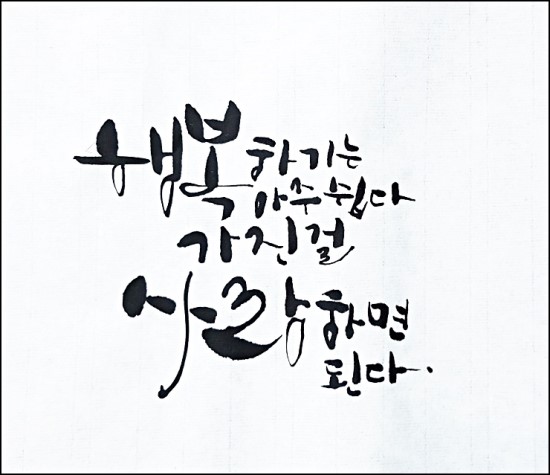 행복하기는
아주 쉽다
가진걸
사랑하면
된다.